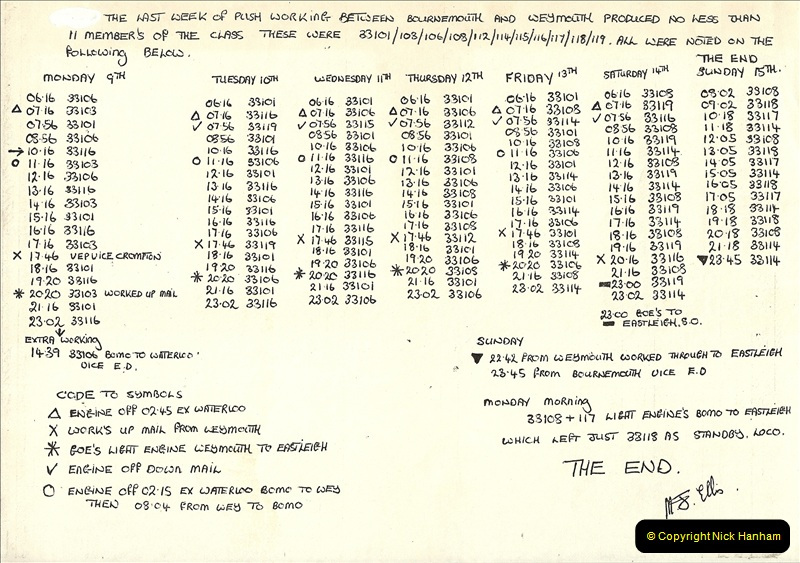 THE LAST WEEK OF PUSH WORKING BETWEEN BOURNEMOUTH AND WEYMOUTH PRODUCED NO LESS THAN
11 MEMBER'S OF THE CLASS THESE WERE 33101/103/106/108/112/114/115/116/117/118/119. ALL WERE NOTED ON THE
FOLLOWING BELOW.
MONDAY 9TH
06.16 33106
△ 07.16 33103
07.56 33101
08.56 33106
→ 10.16 33116
O 11.16 33103
12.16 33106
13.16 33116
14.16 33103
15.16 33101
16.16 33116
17.16 33103
X 17.46 VEP VICE CROMPTON
18.16 33101
19.20 33116
✳ 20.20 33103 WORKED UP MAIL
21.16 33101
23.02 33116
EXTRA WORKING
14.39 33106 BOMO TO WATERLOO
VICE E.D.
TUESDAY 10TH
06.16 33101
△ 07.16 33116
✓ 07.56 33119
08.56 33101
10.16 33116
O 11.16 33106
12.16 33101
13.16 33116
14.16 33106
15.16 33101
16.16 33116
17.16 33106
X 17.46 33119
18.16 33101
19.20 33116
✳ 20.20 33106
21.16 33101
23.02 33116
WEDNESDAY 11TH
06.16 33101
△ 07.16 33106
✓ 07.56 33115
08.56 33101
10.16 33106
O 11.16 33116
12.16 33101
13.16 33106
14.16 33116
15.16 33101
16.16 33106
17.16 33116
X 17.46 33115
18.16 33101
19.20 33106
✳ 20.20 33116
21.16 33101
23.02 33106
THURSDAY 12TH
06.16 33101
△ 07.16 33106
✓ 07.56 33112
08.56 33101
10.16 33106
O 11.16 33108
12.16 33101
13.16 33106
14.16 33108
15.16 33101
16.16 33106
17.16 33108
X 17.46 33112
18.16 33101
19.20 33106
✳ 20.20 33108
21.16 33101
23.02 33106
FRIDAY 13TH
06.16 33101
△ 07.16 33108
✓ 07.56 33114
08.56 33101
10.16 33108
O 11.16 33106
12.16 33114
13.16 33108
14.16 33106
15.16 33114
16.16 33108
17.16 33106
X 17.46 33101
18.16 33114
19.20 33108
✳ 20.20 33106
21.16 33108
23.02 33114
SATURDAY 14TH
06.16 33108
△ 07.16 33119
✓ 07.56 33116
08.56 33108
10.16 33119
11.16 33114
12.16 33108
13.16 33119
14.16 33114
15.16 33108
16.16 33119
17.16 33114
18.16 33108
19.16 33119
X 20.16 33116
21.16 33108
▬ 23.00 33119
23.02 33114
23.00 GOE'S TO
▬ EASTLEIGH, S.O.
THE END
SUNDAY 15TH.
08.02 33108
09.02 33118
10.18 33117
11.18 33114
12.05 33108
13.05 33118
14.05 33117
15.05 33114
16.05 33118
17.05 33117
18.18 33114
19.18 33118
20.18 33108
21.18 33114
▼ 23.45 33114
SUNDAY
▼ 22.42 FROM WEYMOUTH WORKED THROUGH TO EASTLEIGH
23.45 FROM BOURNEMOUTH VICE E.D
MONDAY MORNING
33108 + 117 LIGHT ENGINE'S BOMO TO EASTLEIGH
WHICH LEFT JUST 33118 AS STANDBY. LOCO.
THE END.
M J. Ellis.
CODE TO SYMBOLS
△ ENGINE OFF 02.45 EX WATERLOO
X WORK'S UP MAIL FROM WEYMOUTH
✳ GOE'S LIGHT ENGINE WEYMOUTH TO EASTLEIGH
✓ ENGINE OFF DOWN MAIL
O ENGINE OFF 02.15 EX WATERLOO BOMO TO WEY
THEN 08.04 FROM WEY TO BOMO
© Copyright Nick Hanham